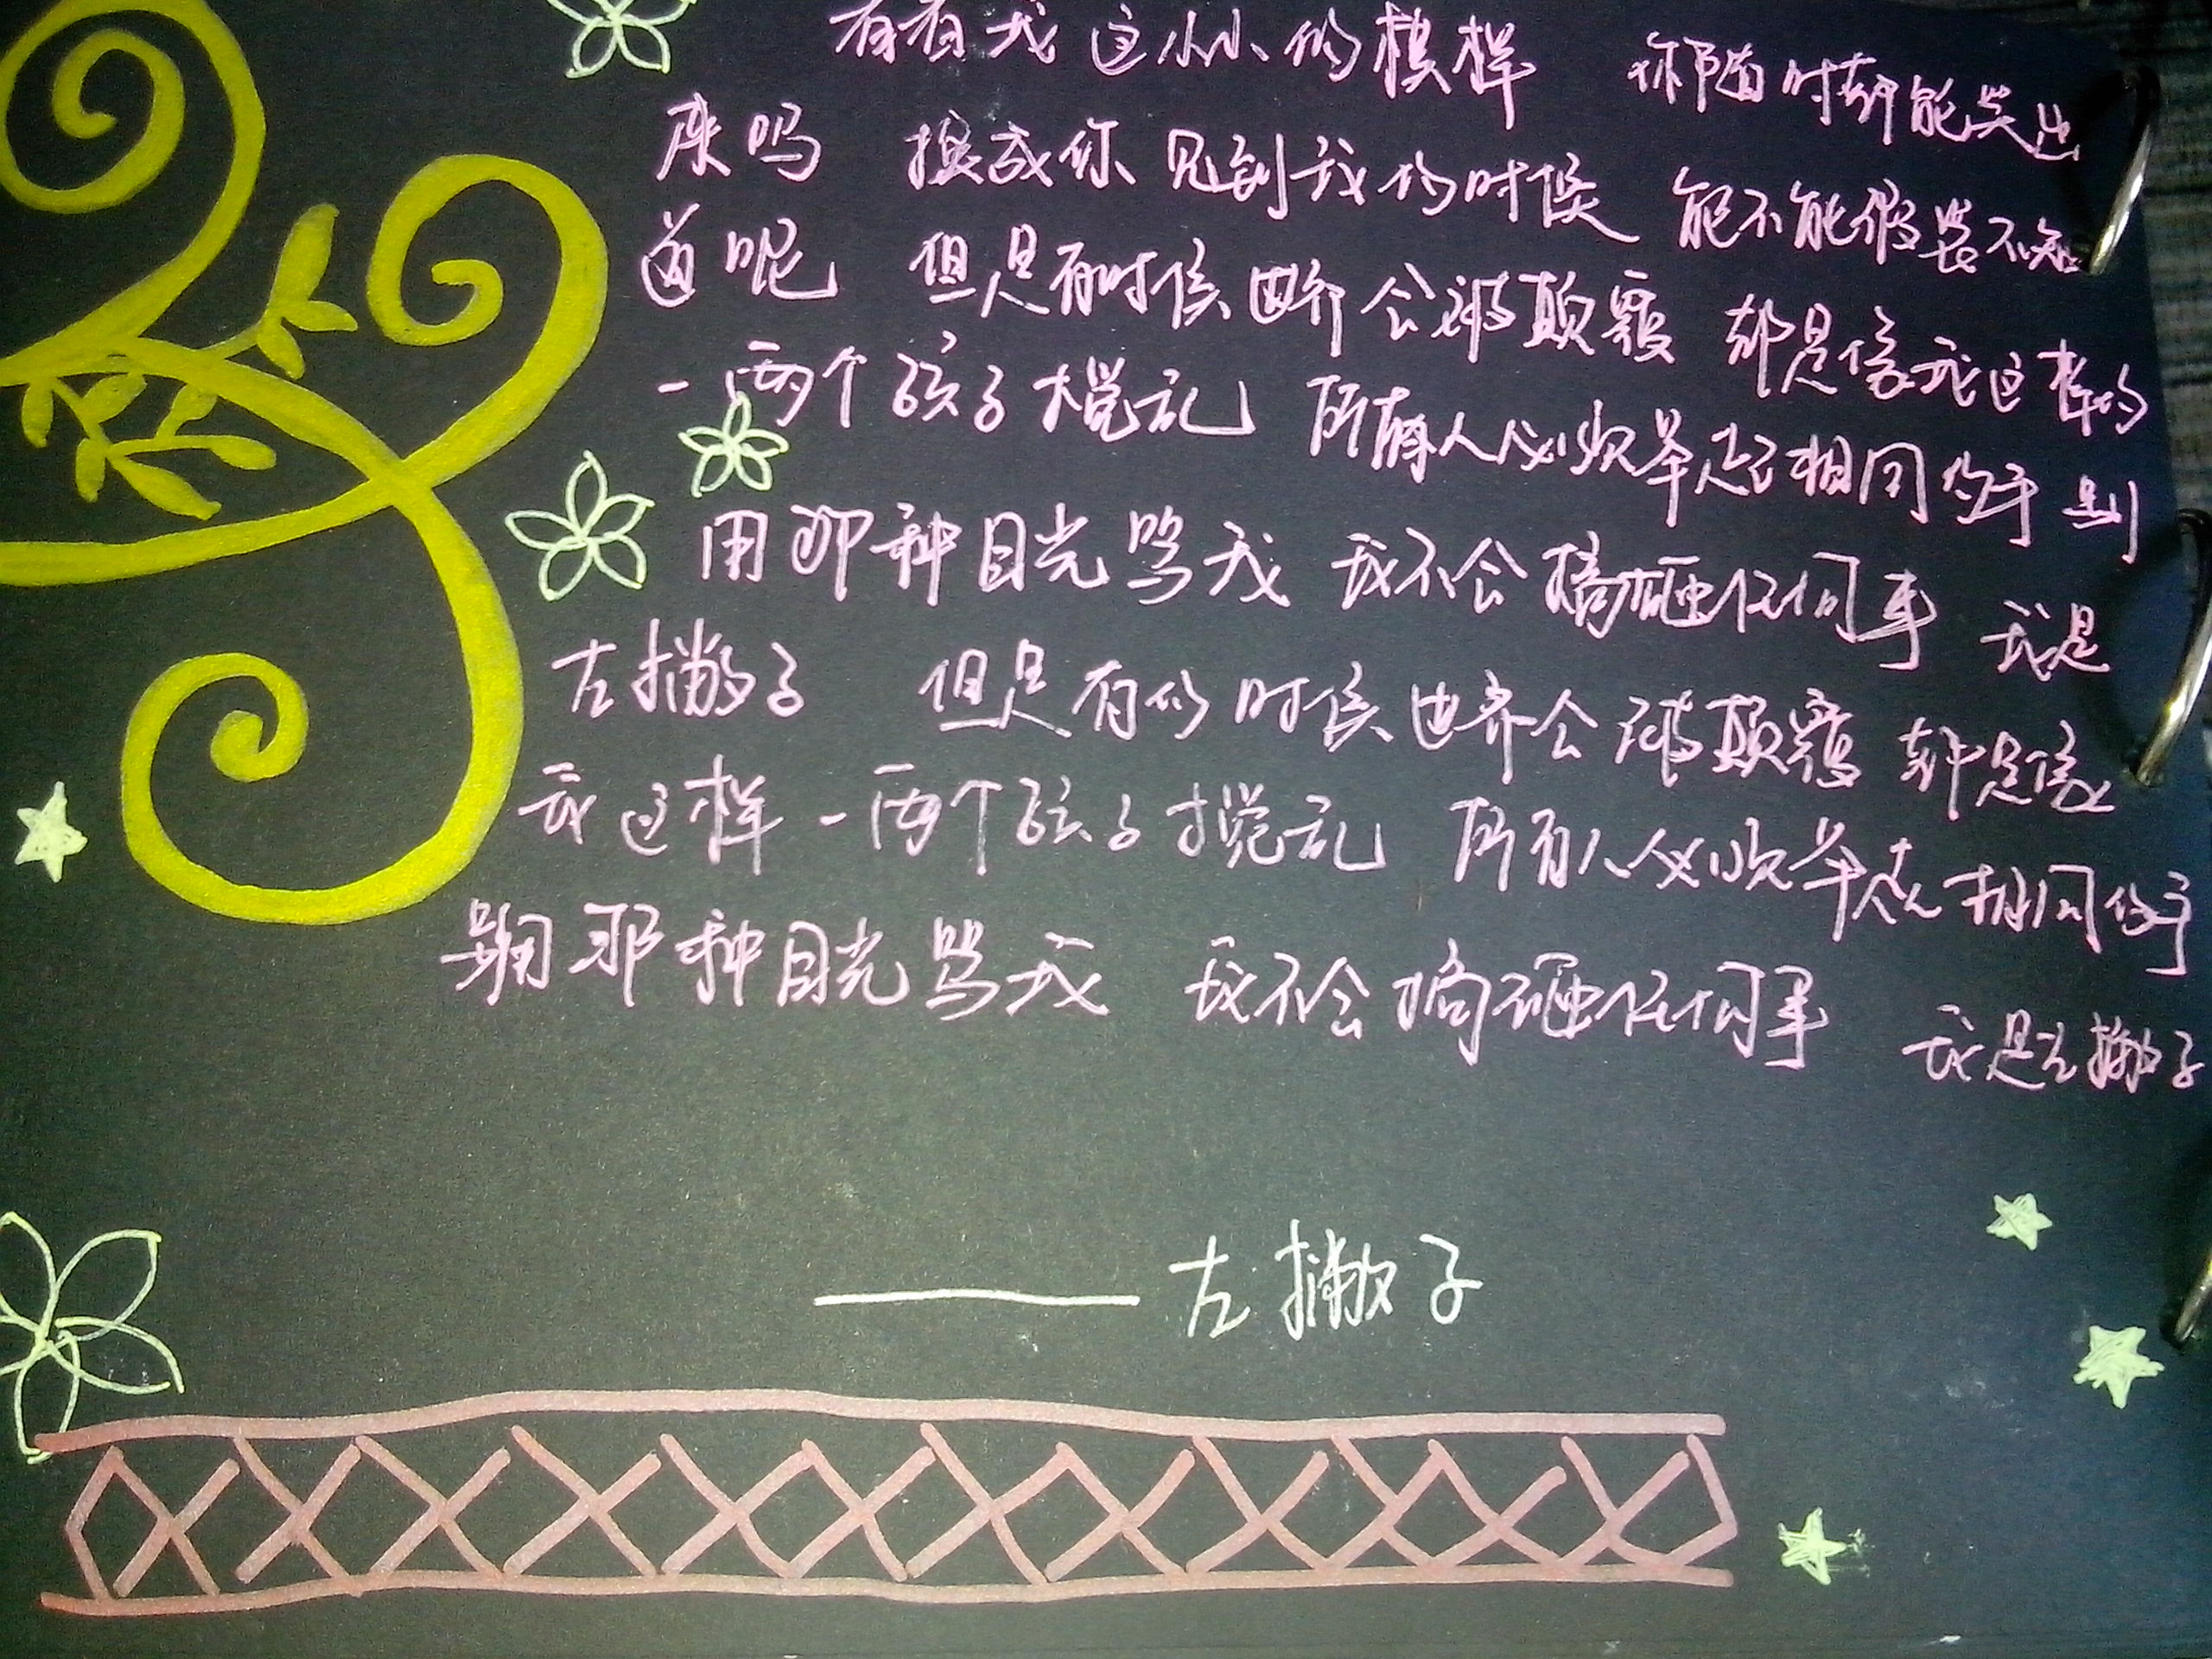 看看我 这小小的模样 你随时都能哭出
来吗 换成你 见到我的时候 能不能假装不知
道呢 但是有时候世界会被颠覆 都是像我这样的
一两个孩子搅乱 所有人必须举起相同的手 别
用那种目光骂我 我不会搞砸任何事 我是
左撇子 但是有的时候世界会被颠覆 都是像
我这样一两个孩子搅乱 所有人必须举起相同的手
别用那种目光骂我 我不会搞砸任何事 我是左撇子
——左撇子